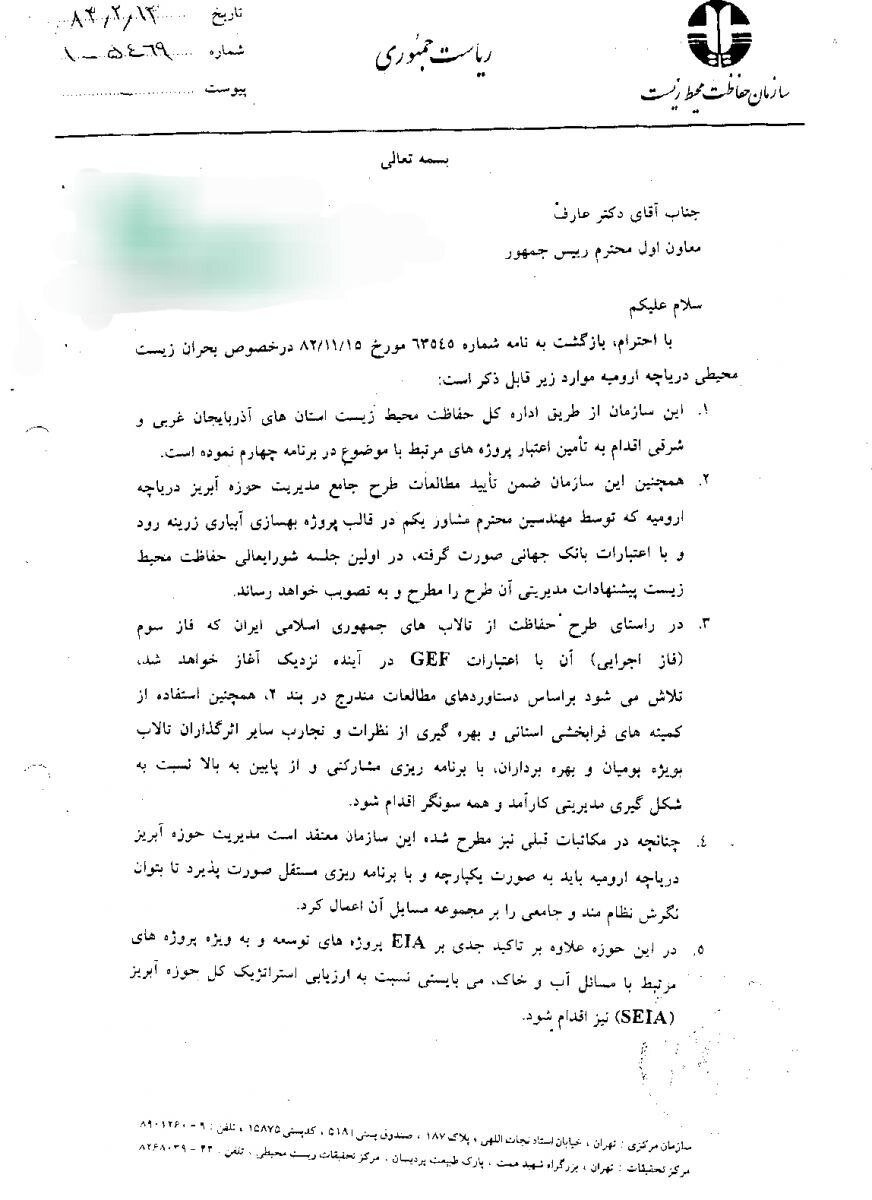 تاریخ ۸۳٫۲٫۱۳
ریاست جمهوری
شماره ۱-۵۴۶۹
سازمان حفاظت محیط زیست
پیوست
بسمه تعالی
جناب آقای دکتر عارف
معاون اول محترم رییس جمهور
سلام علیکم
با احترام، بازگشت به نامه شماره ۶۳۵۴۵ مورخ ۸۲/۱۱/۱۵ درخصوص بحران زیست
محیطی دریاچه ارومیه موارد زیر قابل ذکر است:
۱. این سازمان از طریق اداره کل حفاظت محیط زیست استان های آذربایجان غربی و
شرقی اقدام به تأمین اعتبار پروژه های مرتبط با موضوع در برنامه چهارم نموده است.
۲. همچنین این سازمان ضمن تأیید مطالعات طرح جامع مدیریت حوزه آبریز دریاچه
ارومیه که توسط مهندسین محترم مشاور یکم در قالب پروژه بهسازی آبیاری زرینه رود
و با اعتبارات بانک جهانی صورت گرفته، در اولین جلسه شورایعالی حفاظت محیط
زیست پیشنهادات مدیریتی آن طرح را مطرح و به تصویب خواهد رساند.
۳. در راستای طرح حفاظت از تالاب های جمهوری اسلامی ایران که فاز سوم
(فاز اجرایی) آن با اعتبارات GEF در آینده نزدیک آغاز خواهد شد،
تلاش می شود براساس دستاوردهای مطالعات مندرج در بند ۲، همچنین استفاده از
کمیته های فرابخشی استانی و بهره گیری از نظرات و تجارب سایر اثرگذاران تالاب
بویژه بومیان و بهره برداران، با برنامه ریزی مشارکتی و از پایین به بالا نسبت به
شکل گیری مدیریتی کارآمد و همه سونگر اقدام شود.
۴. چنانچه در مکاتبات قبلی نیز مطرح شده این سازمان معتقد است مدیریت حوزه آبریز
دریاچه ارومیه باید به صورت یکپارچه و با برنامه ریزی مستقل صورت پذیرد تا بتوان
نگرش نظام مند و جامعی را بر مجموعه مسایل آن اعمال کرد.
۵. در این حوزه علاوه بر تاکید جدی بر EIA پروژه های توسعه و به ویژه پروژه های
مرتبط با مسائل آب و خاک، می بایستی نسبت به ارزیابی استراتژیک کل حوزه آبریز
(SEIA) نیز اقدام شود.
سازمان مرکزی : تهران ، خیابان استاد نجات اللهی ، پلاک ۱۸۷ ، صندوق پستی ۵۱۸۱ ، کدپستی ۱۵۸۷۵ ، تلفن : ۹-۸۹۰۱۲۶۰
مرکز تحقیقات : تهران ، بزرگراه شهید همت ، پارک طبیعت پردیسان ، مرکز تحقیقات زیست محیطی ، تلفن : ۴۳-۸۲۶۸۰۳۹